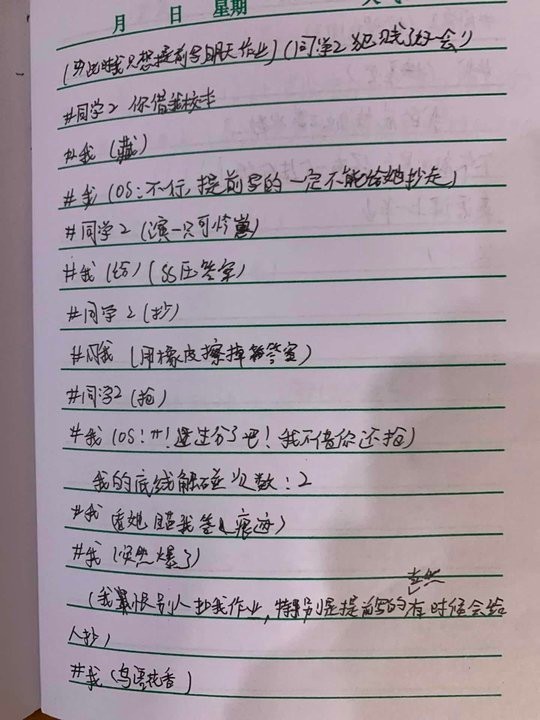 月 日 星期
(岁此时我只想提前写明天作业)(同学2犯贱了好一会)
#同学2 你借我校本
#我 (藏)
#我 (OS:不行,提前写的一定不能给她抄走)
#同学2 (演一只可怜崽)
#我 (给) (SS压答案)
#同学2 (抄)
#我 (用橡皮擦掉答案)
#同学2 (抢)
#我 (OS! 过分了吧! 我不借你还抢)
我的底线触碰次数:2
#我 我 痕迹)
#我 (突然爆了)
(我最恨别人抄我作业,特别是提前写的 当然 有时候会给
人抄)
#我 (鸟语花香)